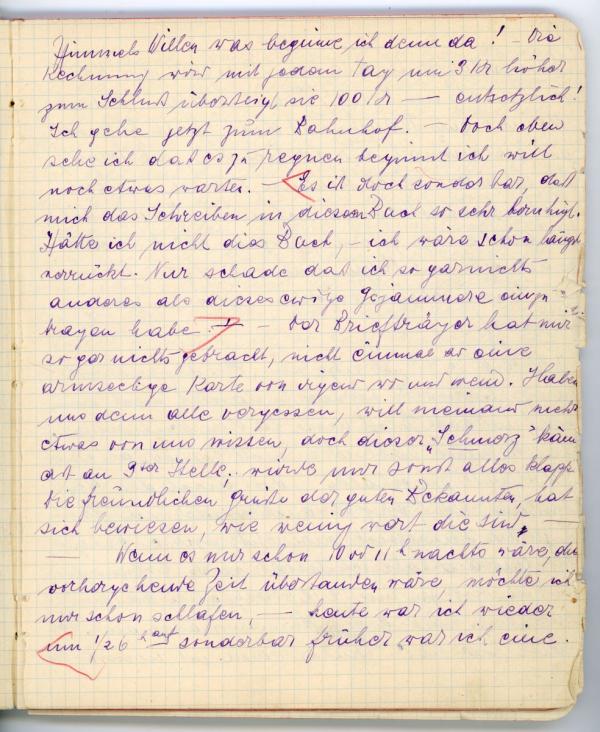 Himmels Willen was beginne ich denn da! – Die
Rechnung wird mit jedem Tag um 3 Kr höher
zum Schluß übersteigt sie 100 Kr — entsetzlich!
Ich gehe jetzt zum Bahnhof. – Doch eben
sehe ich dat es zu regnen beginnt ich will
noch etwas warten. – Es ist doch sonderbar, dat
mich das Schreiben in diesem Buch so sehr beruhigt.
Hätte ich nicht dies Buch, – ich wäre schon längst
verrückt. Nur schade dat ich so garnichts
anderes als dieses ewige Gejammere einge
tragen habe. – – Der Briefträger hat mir
so gar nichts gebracht, nicht einmal eine
armseelige Karte von irgend wo und wem. Haben
uns denn alle vergessen, will niemand mehr
etwas von uns wissen, doch dieser „Schmerz" käm
at an 9ter Stelle, würde nur sonst alles klapp
Die freundlichen Grüße der guten Bekannten, hat
sich bewiesen, wie wenig wert die sind, —
— Wenn es nur schon 10 od 11 h nachts wäre, die
vorhergehende Zeit überstanden wäre, möchte ich
nur schon schlafen, – heute war ich wieder
um 1/2 6 h auf sonderbar früher war ich eine.